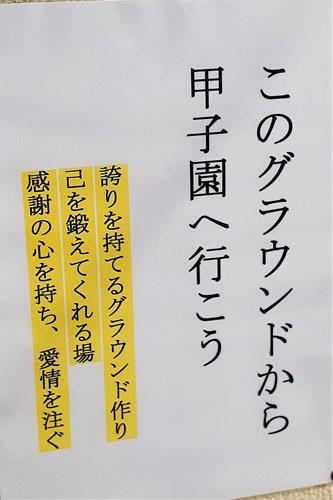 このグラウンドから
甲子園へ行こう
誇りを持てるグラウンド作り
己を鍛えてくれる場
感謝の心を持ち、愛情を注ぐ